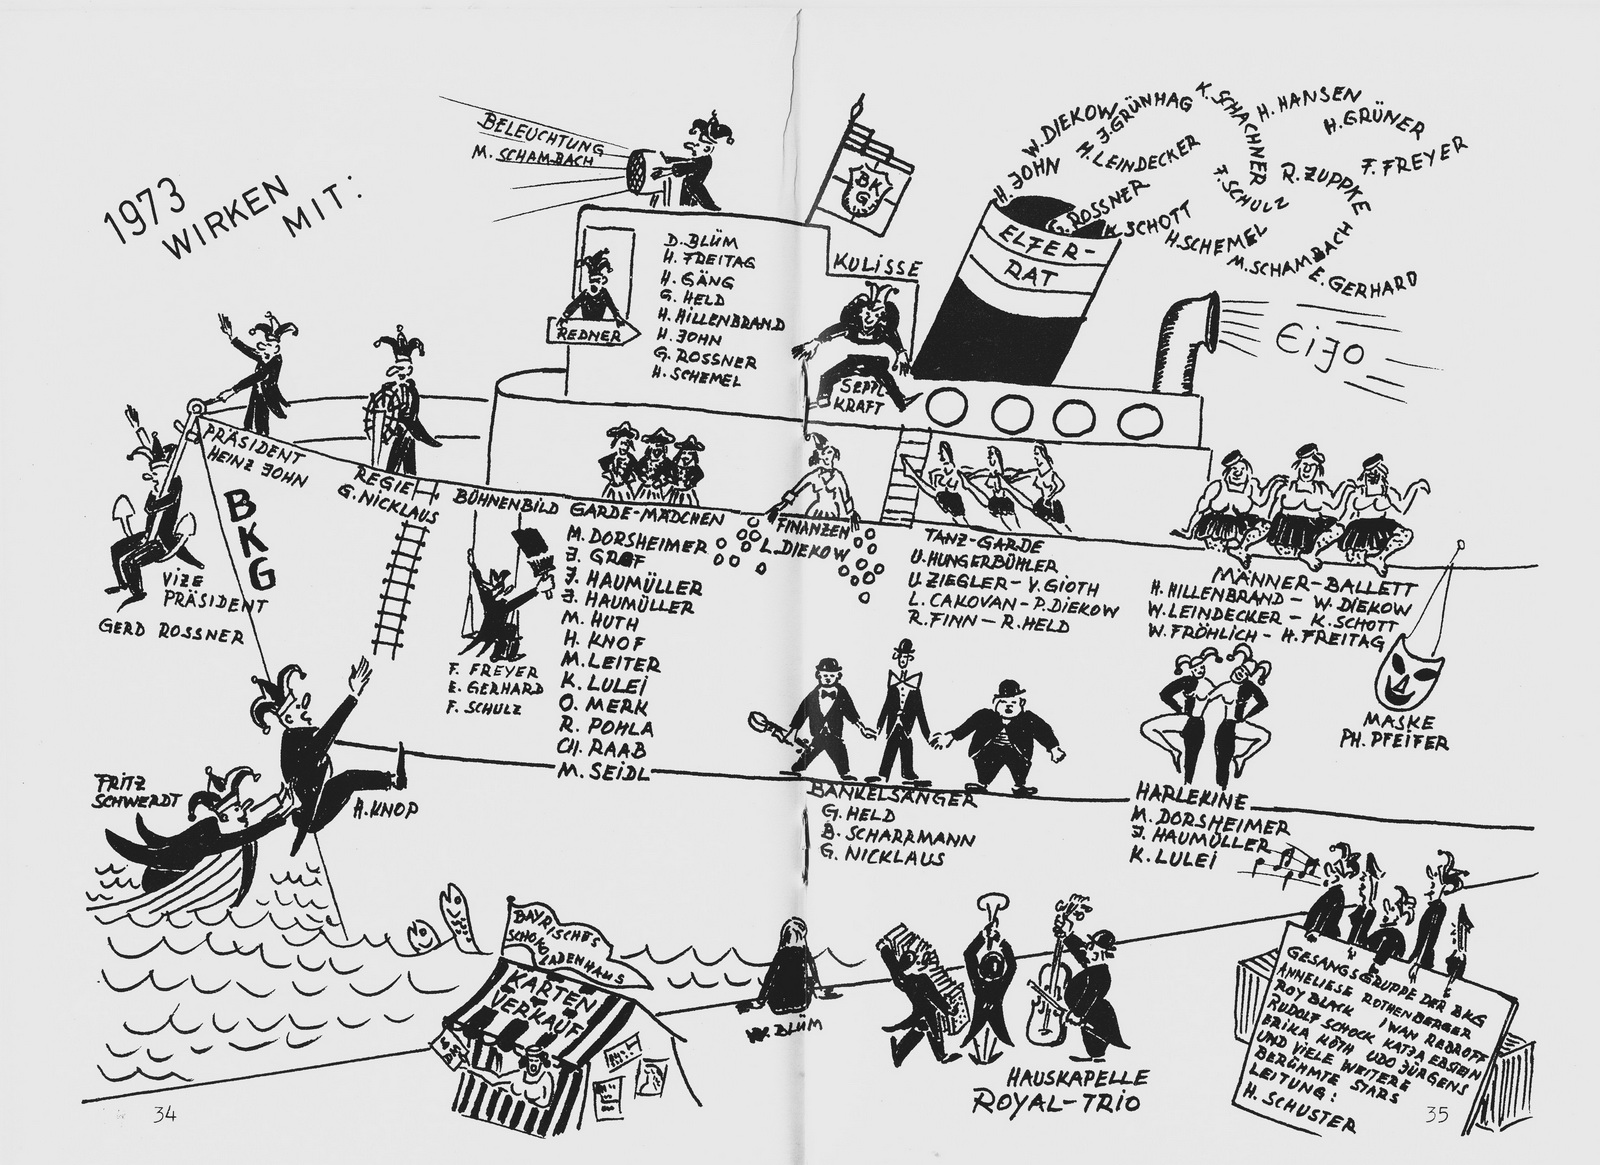 1973
WIRKEN
MIT:
BELEUCHTUNG
M. SCHAMBACH
BKG
KULISSE
SEPPL
KRAFT
REDNER
D. BLÜM
H. FREITAG
H. GÄNG
G. HELD
H. HILLENBRAND
H. JOHN
G. ROSSNER
H. SCHEMEL
ELFER-
RAT
H. JOHN
W. DIEKOW
J. GRÜNHAG
H. LEINDECKER
G. ROSSNER
K. SCHOTT
K. SCHACHNER
H. HANSEN
H. GRÜNER
F. FREYER
R. ZUPPKE
F. SCHULZ
H. SCHEMEL
M. SCHAMBACH
E. GERHARD
EiJO
PRÄSIDENT
HEINZ JOHN
REGIE
G. NICKLAUS
BKG
VIZE
PRÄSIDENT
GERD ROSSNER
BÜHNENBILD
F. FREYER
E. GERHARD
F. SCHULZ
GARDE-MÄDCHEN
M. DORSHEIMER
J. GRAF
J. HAUMÜLLER
J. HAUMÜLLER
M. HUTH
H. KNOF
M. LEITER
K. LULEI
O. MERK
R. POHLA
CH. RAAB
M. SEIDL
FINANZEN
L. DIEKOW
TANZ-GARDE
U. HUNGERBÜHLER
U. ZIEGLER - V. GIOTH
L. CAKOVAN - P. DIEKOW
R. FINN - R. HELD
MÄNNER-BALLETT
H. HILLENBRAND - W. DIEKOW
W. LEINDECKER - K. SCHOTT
W. FRÖHLICH - H. FREITAG
MASKE
PH. PFEIFER
FRITZ
SCHWERDT
H. KNOP
BÄNKELSÄNGER
G. HELD
B. SCHARRMANN
G. NICKLAUS
HARLEKINE
M. DORSHEIMER
J. HAUMÜLLER
K. LULEI
BAYRISCHES
SCHOKO
LADENHAUS
KARTEN
VERKAUF
W. BLÜM
HAUSKAPELLE
ROYAL-TRIO
GESANGSGRUPPE DER BKG
ANNELIESE ROTHENBERGER
ROY BLACK IWAN REBROFF
RUDOLF SCHOCK KATJA EBSTEIN
ERIKA KÖTH UDO JÜRGENS
UND VIELE WEITERE
BERÜHMTE STARS
LEITUNG:
H. SCHUSTER
34
35